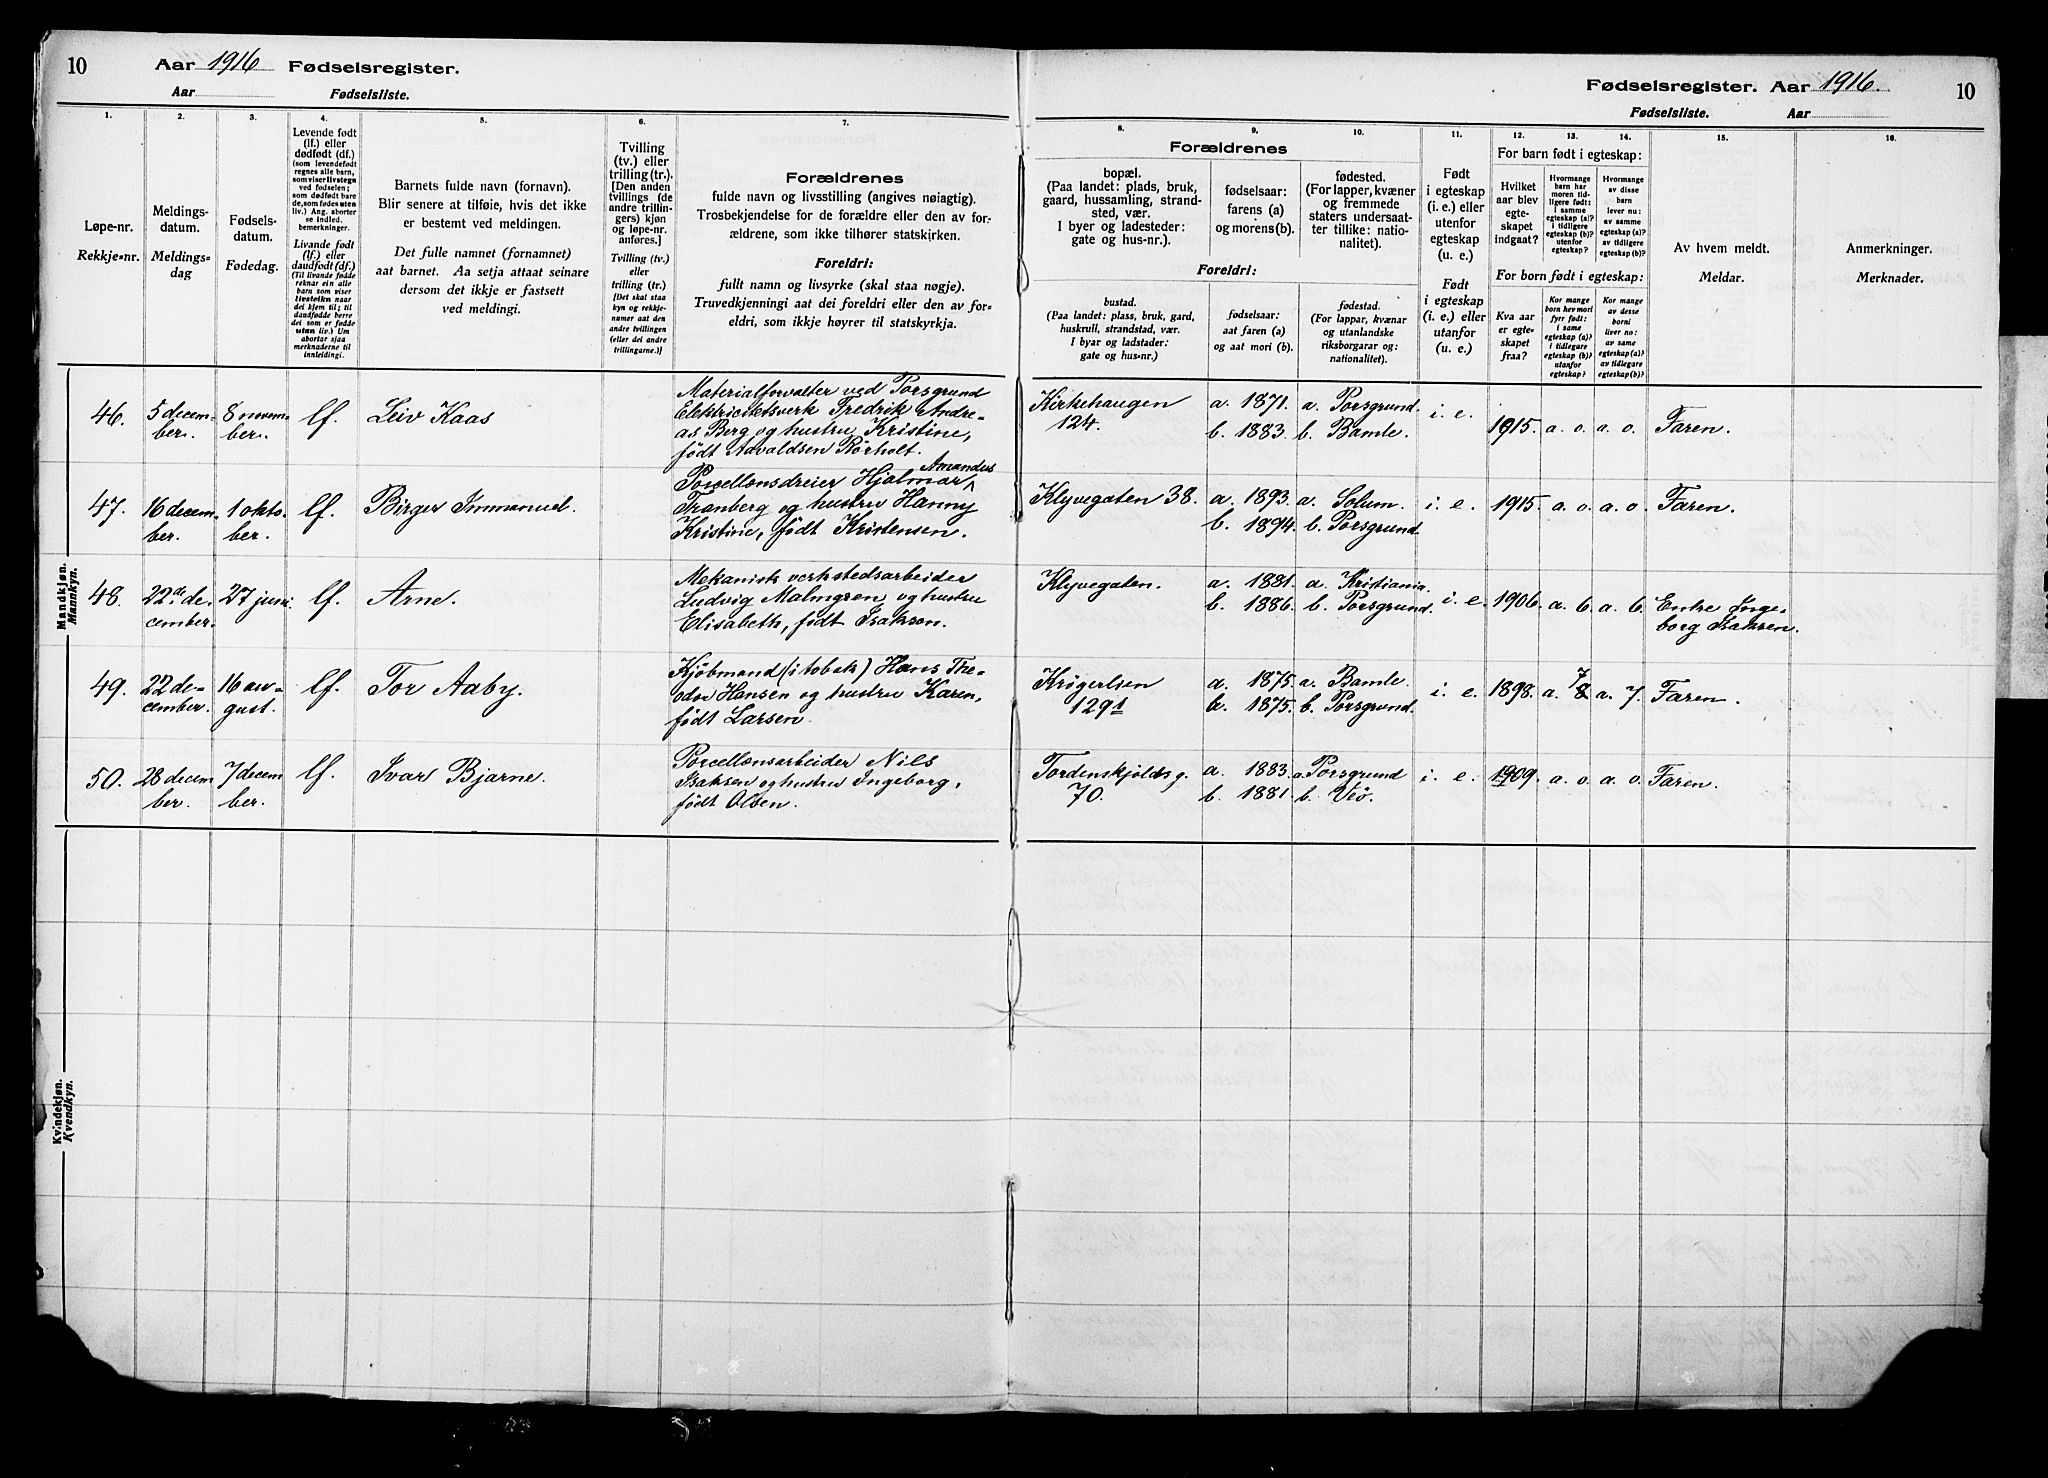 10 Aar 1916 Fødselsregister.
Aar Fødselsliste.
Fødselsregister. Aar 1916. 10
Fødselsliste. Aar
1. 2. 3. 4. 5. 6. 7. 8. 9. 10. 11. 12. 13. 14. 15. 16.
Løpe-nr.
Rekkje-nr.
Meldings-
datum.
Meldings-
dag
Fødsels-
datum.
Fødedag.
Levende født
(lf.) eller
dødfødt (df.)
(som levendefødt
regnes alle barn,
som viser livstegn
ved fødselen;
som dødfødt bare
de, som fødes uten
liv.) Ang. aborter
se indled.
bemerkninger.
Livande født
(lf.) eller
daudfødt (df.)
(Til livande fødde
reknar ein alle
barn som viser
livsteikn naar
dei kjem til; til
daudfødde berre
dei som er fødde
utan liv.) Um
abortar sjaa
merknaderne til
innleidingi.
Barnets fulde navn (fornavn).
Blir senere at tilføie, hvis det ikke
er bestemt ved meldingen.
Det fulle namnet (fornamnet)
aat barnet. Aa setja attaat seinare
dersom det ikkje er fastsett
ved meldingi.
Tvilling
(tv.) eller
trilling (tr.)
[Den anden
tvillings (de
andre trillin-
gers) kjøn
og løpe-nr.
anføres.]
Tvilling (tv.)
eller
trilling (tr.)
[Det skal staa
kyn og rekkje-
numer aat den
andre tvillingen
(eller dei andre
trillingarne.)]
Forældrenes
fulde navn og livsstilling (angives nøiagtig).
Trosbekjendelse for de forældre eller den av for-
ældrene, som ikke tilhører statskirken.
Foreldri:
fullt namn og livsyrke (skal staa nøgje).
Truvedkjenningi aat dei foreldri eller den av fo-
reldri, som ikkje høyrer til statskyrkja.
Forældrenes
bopæl.
(Paa landet: plads, bruk,
gaard, hussamling, strand-
sted, vær.
I byer og ladesteder:
gate og hus-nr.).
fødselsaar:
farens (a)
og morens(b).
fødested.
(For lapper, kvæner
og fremmede
staters undersaat-
ter tillike: natio-
nalitet).
Foreldri:
bustad.
(Paa landet: plass, bruk, gard,
huskrull, strandstad, vær.
I byar og ladstader:
gate og hus-nr.)
fødselsaar:
aat faren (a)
og aat mori (b).
fødestad.
(For lappar, kvænar
og utanlandske
riksborgarar og:
nationalitet).
Født
i egteskap
(i. e.) eller
utenfor
egteskap
(u. e.)
Født
i egteskap
(i. e.) eller
utanfor
(u. e.)
For barn født i egteskap:
Hvilket
aar blev
egte-
skapet
indgaat?
Hvormange
barn har
moren tid-
ligere født:
i samme
egteskap (a)?
i tidligere
egteskap (b)?
utenfor
egteskap?
Hvormange
av disse
barn
lever nu:
av samme
egteskap (a)?
av tidligere
egteskap (b)?
For born født i egteskap:
Kva aar
er egte-
skapet
fraa?
Kor mange
born hev mori
fyrr født:
i same
egteskap (a)?
i tidlegare
egteskap (b)?
utanfor
egteskap?
Kor mange
av desse
borni
liver no:
av same
egteskap (a)?
av tidlegare
egteskap (b)?
Av hvem meldt.
Meldar.
Anmerkninger.
Merknader.
Mandkjøn.
Mannkyn.
46. 5 decem-
ber. 8 novem-
ber. lf. Leiv Kaas
Materialforvalter ved Porsgrund
Elektricitetsverk Fredrik Andre-
as Berg og hustru Kristine,
født Aavaldsen Rörholt.
Kirkehaugen
124.
a. 1871. a. Porsgrund.
b. 1883. b. Bamle.
i. e. 1915. a. o. a. o. Faren.
47. 16 decem-
ber. 1 okto-
ber. lf. Birger Immanuel.
Amandus
Porcellænsdreier Hjalmar
Tranberg og hustru Hanny
Kristine, født Kristensen.
Klyvegaten 38.
a. 1893. a. Solum.
b. 1894. b. Porsgrund.
i. e. 1915. a. o. a. o. Faren.
48. 22de de-
cember. 27 juni lf. Arne.
Mekanisk verkstedsarbeider
Ludvig Malmgren og hustru
Elisabeth, født Isaksen.
Klyvegaten.
a. 1881. a. Kristiania.
b. 1886. b. Porsgrund.
i. e. 1906. a. 6. a. 6. Enke Inge-
borg Isaksen.
49. 22 de-
cember. 16 au-
gust. lf. Tor Aaby.
Kjöbmand (i tobak) Hans The-
odor Hansen og hustru Karen,
født Larsen.
Krögerløen
129 1
a. 1875. a. Bamle.
b. 1875. b. Porsgrund.
i. e. 1898. a. 7 8 a. 7. Faren.
50. 28 decem
ber. 7 decem
ber. lf. Ivar Bjarne.
Porcellænsarbeider Nils
Isaksen og hustru Ingeborg,
født Olsen.
Tordenskjolds g.
70.
a. 1883. a. Porsgrund
b. 1881. b. Veö.
i. e. 1909. a. o. a. o. Faren.
Kvindekjøn.
Kvendkyn.